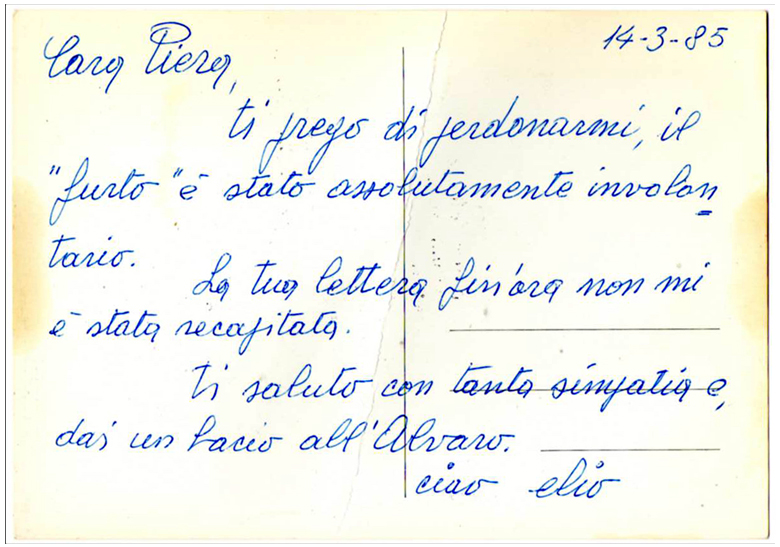 14-3-85
Cara Piera,
ti prego di perdonarmi, il
"furto" è stato assolutamente involon
tario.
La tua lettera fin'ora non mi
è stata recapitata.
Ti saluto con tanta simpatia e,
dai un bacio all'Alvaro.
ciao elio